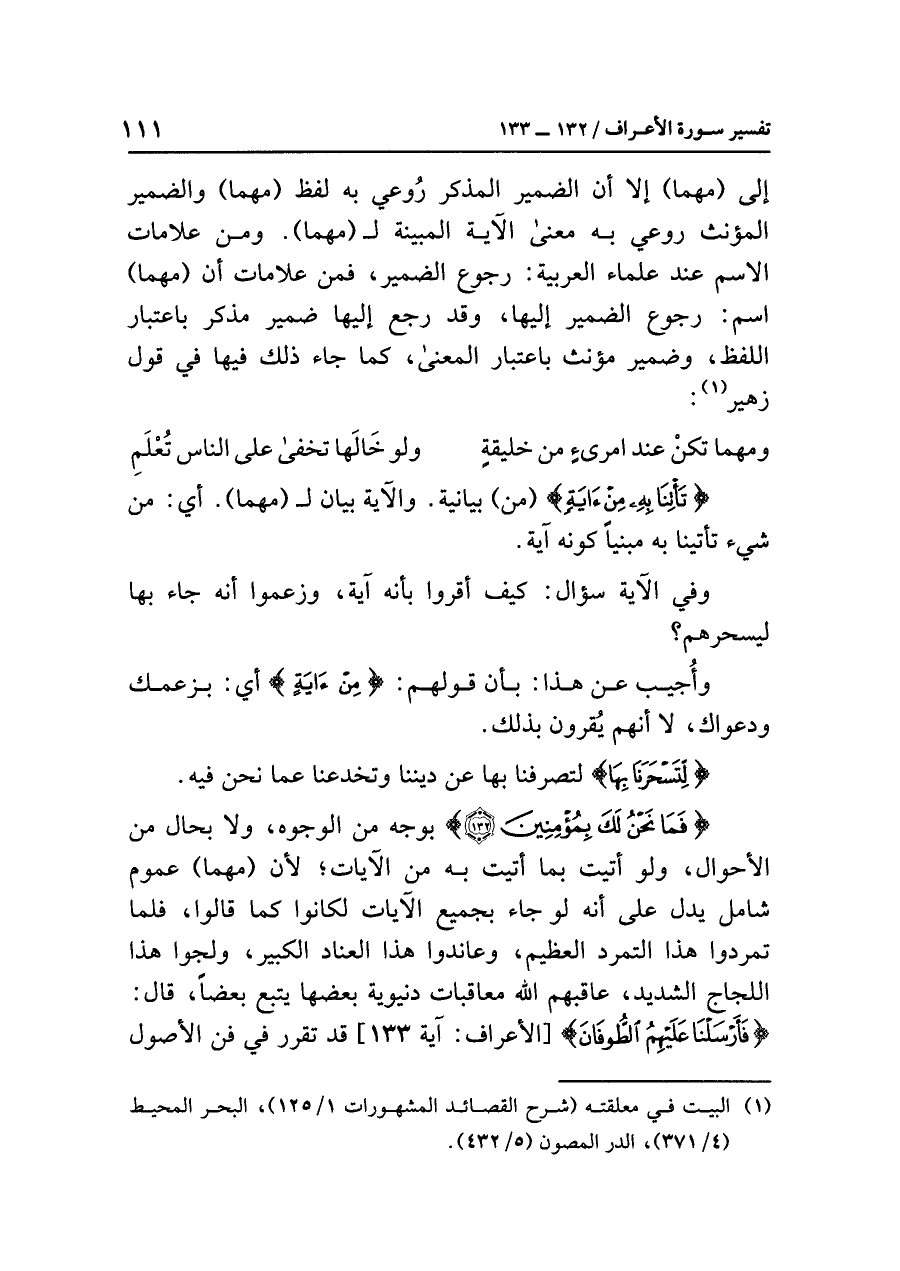 تفسير سـورة الأعـراف / ١٣٢ ـ ١٣٣
١١١
إلى (مهما) إلا أن الضمير المذكر رُوعي به لفظ (مهما) والضمير
المؤنث روعي بـه معنىٰ الآيـة المبينة لـ (مهما). ومـن علامات
الاسم عند علماء العربية: رجوع الضمير، فمن علامات أن (مهما)
اسم: رجوع الضمير إليها، وقد رجع إليها ضمير مذكر باعتبار
اللفظ، وضمير مؤنث باعتبار المعنىٰ، كما جاء ذلك فيها في قول
زهير(١):
ومهما تكنْ عند امرىءٍ من خليقةٍ ولو خَالَها تخفىٰ على الناس تُعْلَمِ
﴿ تَأْتِنَا بِهِۦ مِنْ ءَايَةٍ﴾ (من) بيانية. والآية بيان لـ (مهما). أي: من
شيء تأتينا به مبنياً كونه آية.
وفي الآية سؤال: كيف أقروا بأنه آية، وزعموا أنه جاء بها
ليسحرهم؟
وأُجيـب عـن هـذا: بـأن قـولهـم: ﴿ مِنْ ءَايَةٍ ﴾ أي: بـزعمـك
ودعواك، لا أنهم يُقرون بذلك.
﴿ لِّتَسْحَرَنَا بِهَا﴾ لتصرفنا بها عن ديننا وتخدعنا عما نحن فيه.
﴿ فَمَا نَحْنُ لَكَ بِمُؤْمِنِينَ ١٣٢﴾ بوجه من الوجوه، ولا بحال من
الأحوال، ولو أتيت بما أتيت بـه من الآيات؛ لأن (مهما) عموم
شامل يدل على أنه لو جاء بجميع الآيات لكانوا كما قالوا، فلما
تمردوا هذا التمرد العظيم، وعاندوا هذا العناد الكبير، ولجوا هذا
اللجاج الشديد، عاقبهم الله معاقبات دنيوية بعضها يتبع بعضاً، قال:
﴿فَأَرْسَلْنَا عَلَيْهِمُ ٱلطُّوفَانَ﴾ [الأعراف: آية ١٣٣] قد تقرر في فن الأصول
(١) البيـت فـي معلقتـه (شـرح القصـائـد المشهـورات ١/ ١٢٥)، البحـر المحيـط
(٤/ ٣٧١)، الدر المصون (٥/ ٤٣٢).